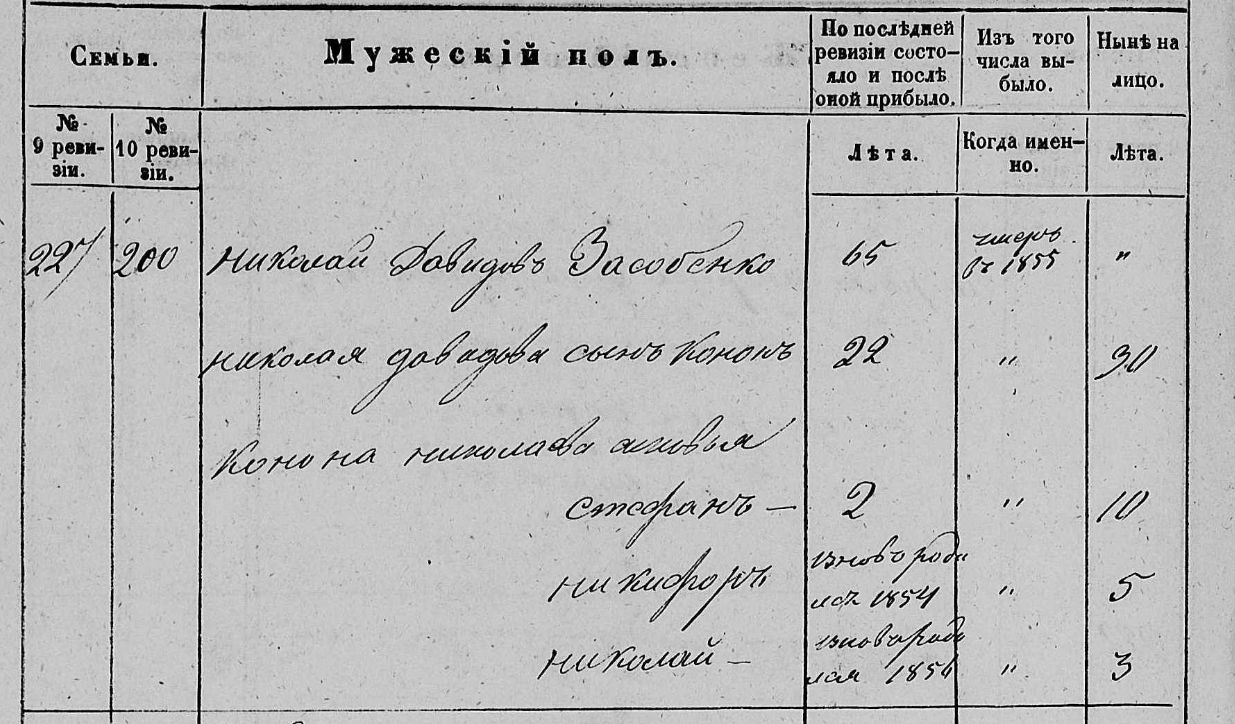 Семьи.
Мужескій полъ.
По послѣдней
ревизіи состо-
яло и послѣ
оной прибыло.
Изъ того
числа вы-
было.
Нынѣ на
лицо.
№
9 реви-
зіи.
№
10 реви-
зіи.
Лѣта.
Когда имен-
но.
Лѣта.
227 200 николай Давидовъ Засобенко 65 умеръ "
въ 1855
николая давидова сынъ Кононъ 22 " 30
Конона николаева сыновья
стефанъ — 2 " 10
никифоръ вновь роди " 5
лся 1854
николай — вновь роди " 3
лся 1856